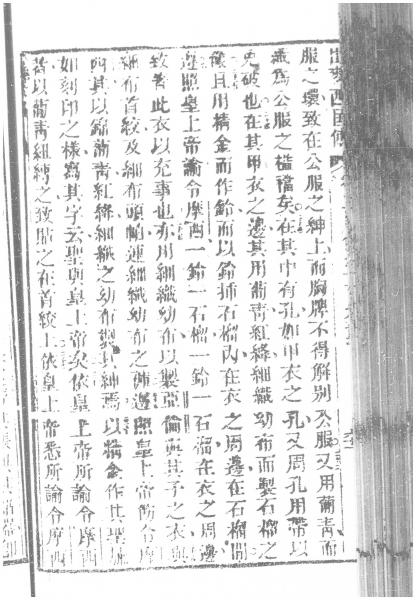 出麥西國傳
服之環致在公服之紳上而胸牌不得解別公服又用葡青而
織為公服之襤襠矣在其中有孔如甲衣之孔又周孔用帶以
免破也在其甲衣之邊其用葡青紅絳細織幼布而製石榴之
像且用精金而作鈴而以鈴插石榴內在衣之周邊在石榴間
遵照皇上帝諭令摩西一鈴一石榴一鈴一石榴在衣之周邊
致著此衣以充事也亦用細織幼布以製亞倫而其子之衣與
細布首絞及細布頭帕連細織幼布之褲遵照皇上帝所令摩
西其以錦葡青紅絳細織之幼布製其紳焉以精金作其聖
如刻印之樣寫其字云聖與皇上帝矣依皇上帝所諭令摩西
皆以葡青組縛之致貼之在首絞上依皇上帝悉所諭令摩西